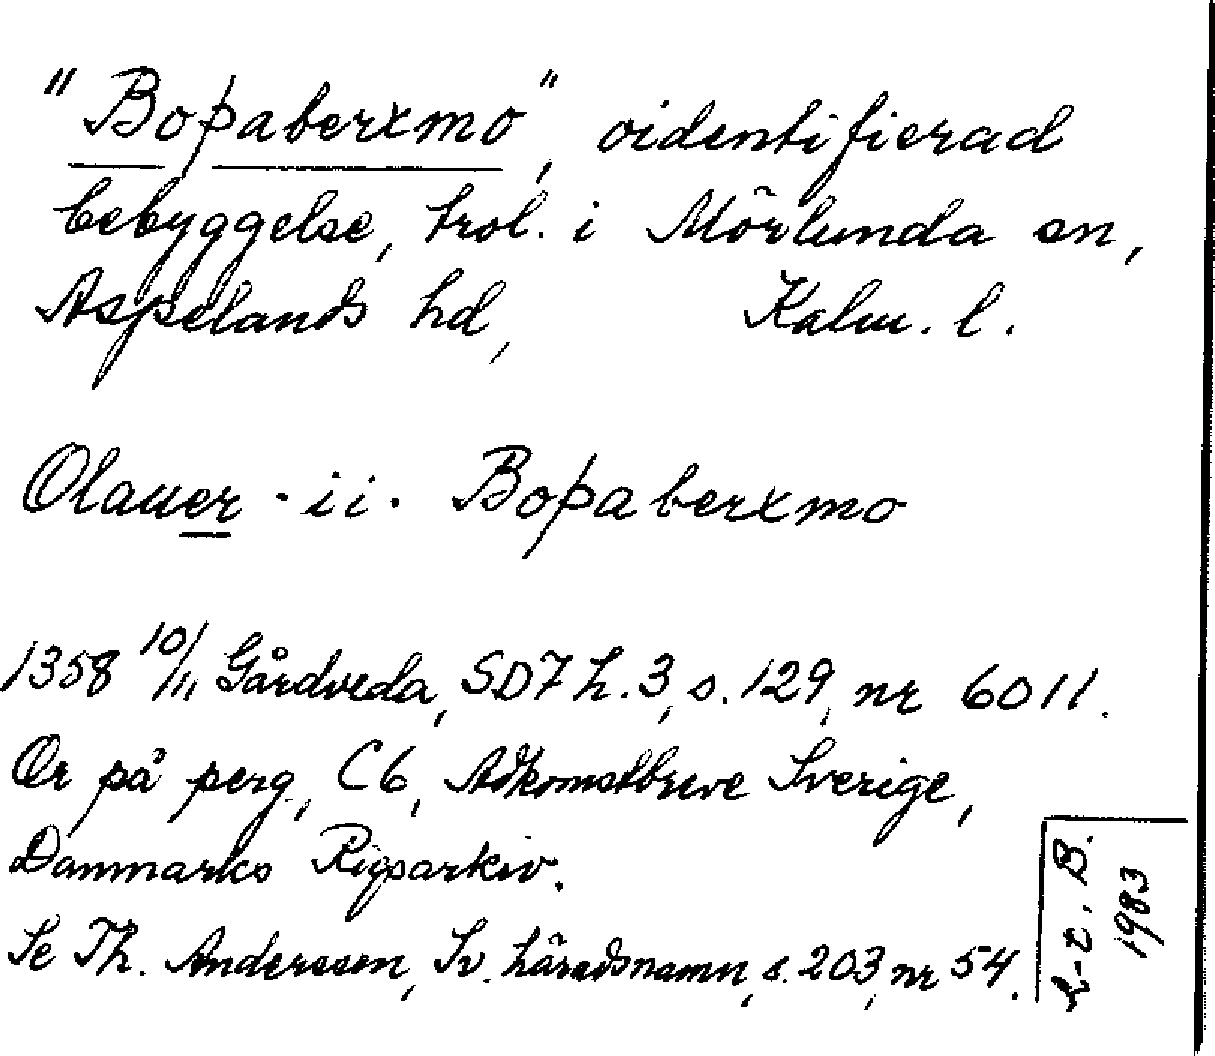 "Boþaberxmo", oidentifierad
bebyggelse, trol. i Mörlunda sn,
Aspelands hd, Kalm. l.
Olauer · ii · Boþaberxmo
1358 10/11 Gårdveda, SD7 h. 3, s. 129, nr 6011.
Or på perg., C6, Adkomstbreve Sverige,
Danmarks Rigsarkiv.
Se Th. Andersson, Sv. häradsnamn, s. 203, nr 54.
B.
1983